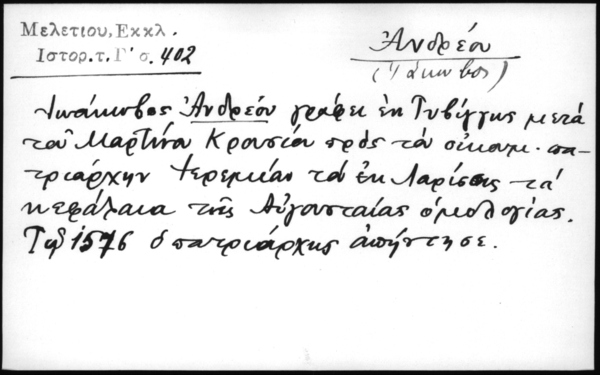 Μελετίου, Εκκλ.
Ιστορ. τ. Γ' σ. 402
Ἀνδρέου
(Ἰάκωβος)
Ἰάκωβος Ἀνδρέου γράφει ἐκ Τυβίγγης μετὰ
τοῦ Μαρτίνου Κρουσίου πρὸς τὸν οἰκουμ. πα-
τριάρχην Ἱερεμίαν τὰ ἐκ τὰ
κεφάλαια τῆς Αὐγουσταίας ὁμολογίας.
Τῷ 1576 ὁ πατριάρχης ἀπήντησε.